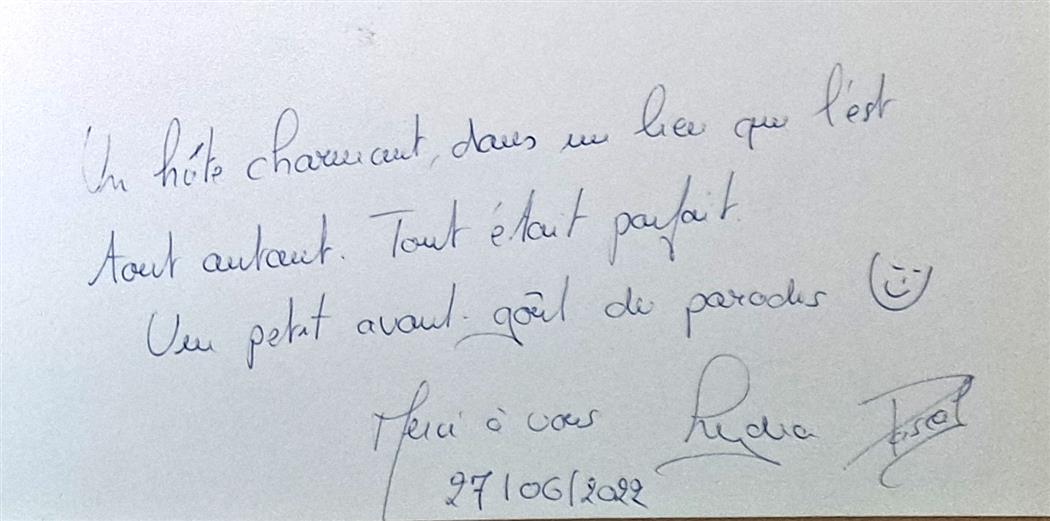 Un hôte charmant, dans un lieu qui l'est
tout autant. Tout était parfait.
Un petit avant-goût de paradis
Merci à vous Lydia Pascal
27/06/2022